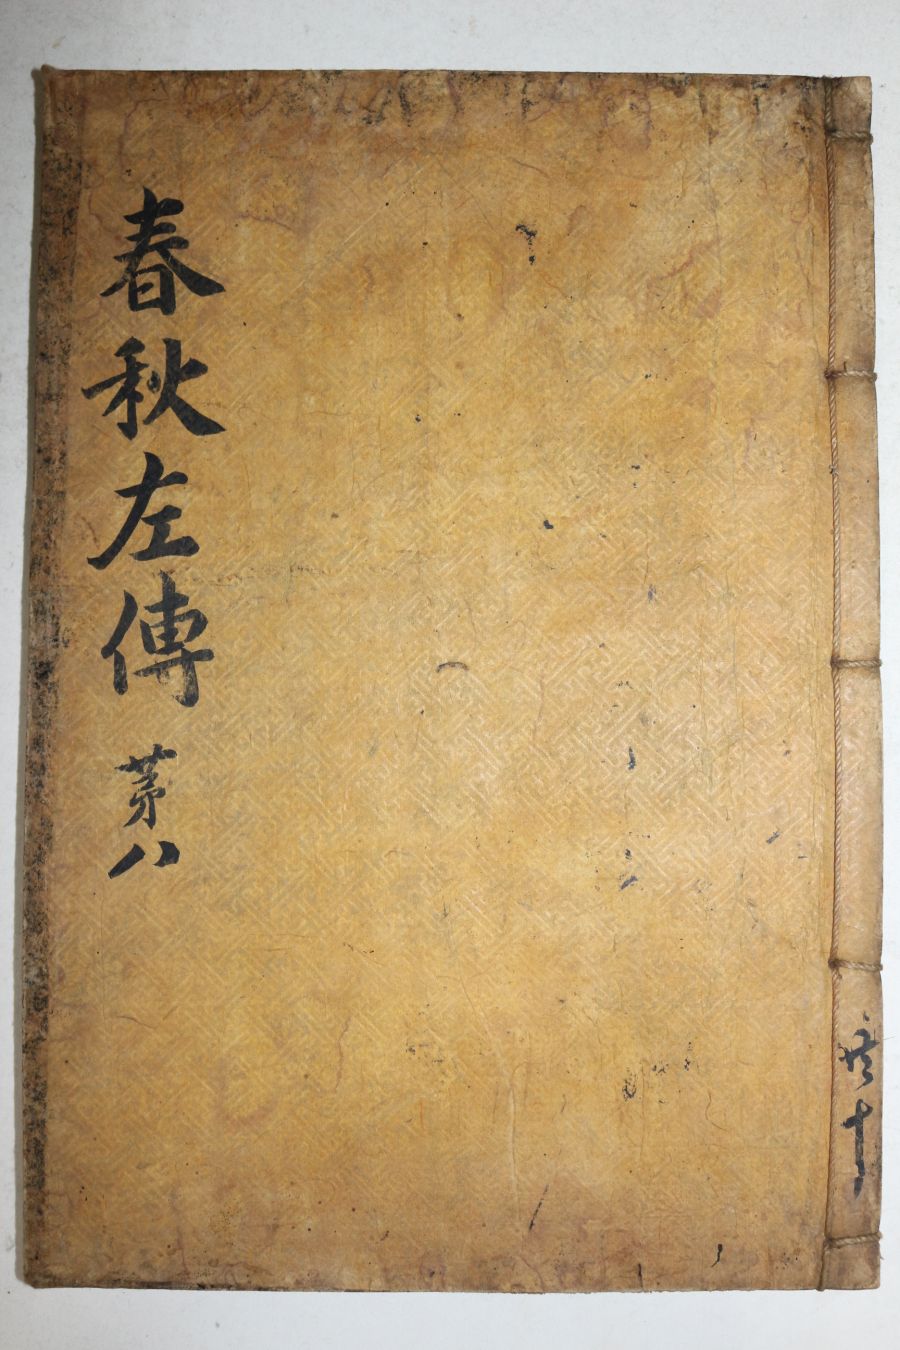 春秋左傳 苐八
共十